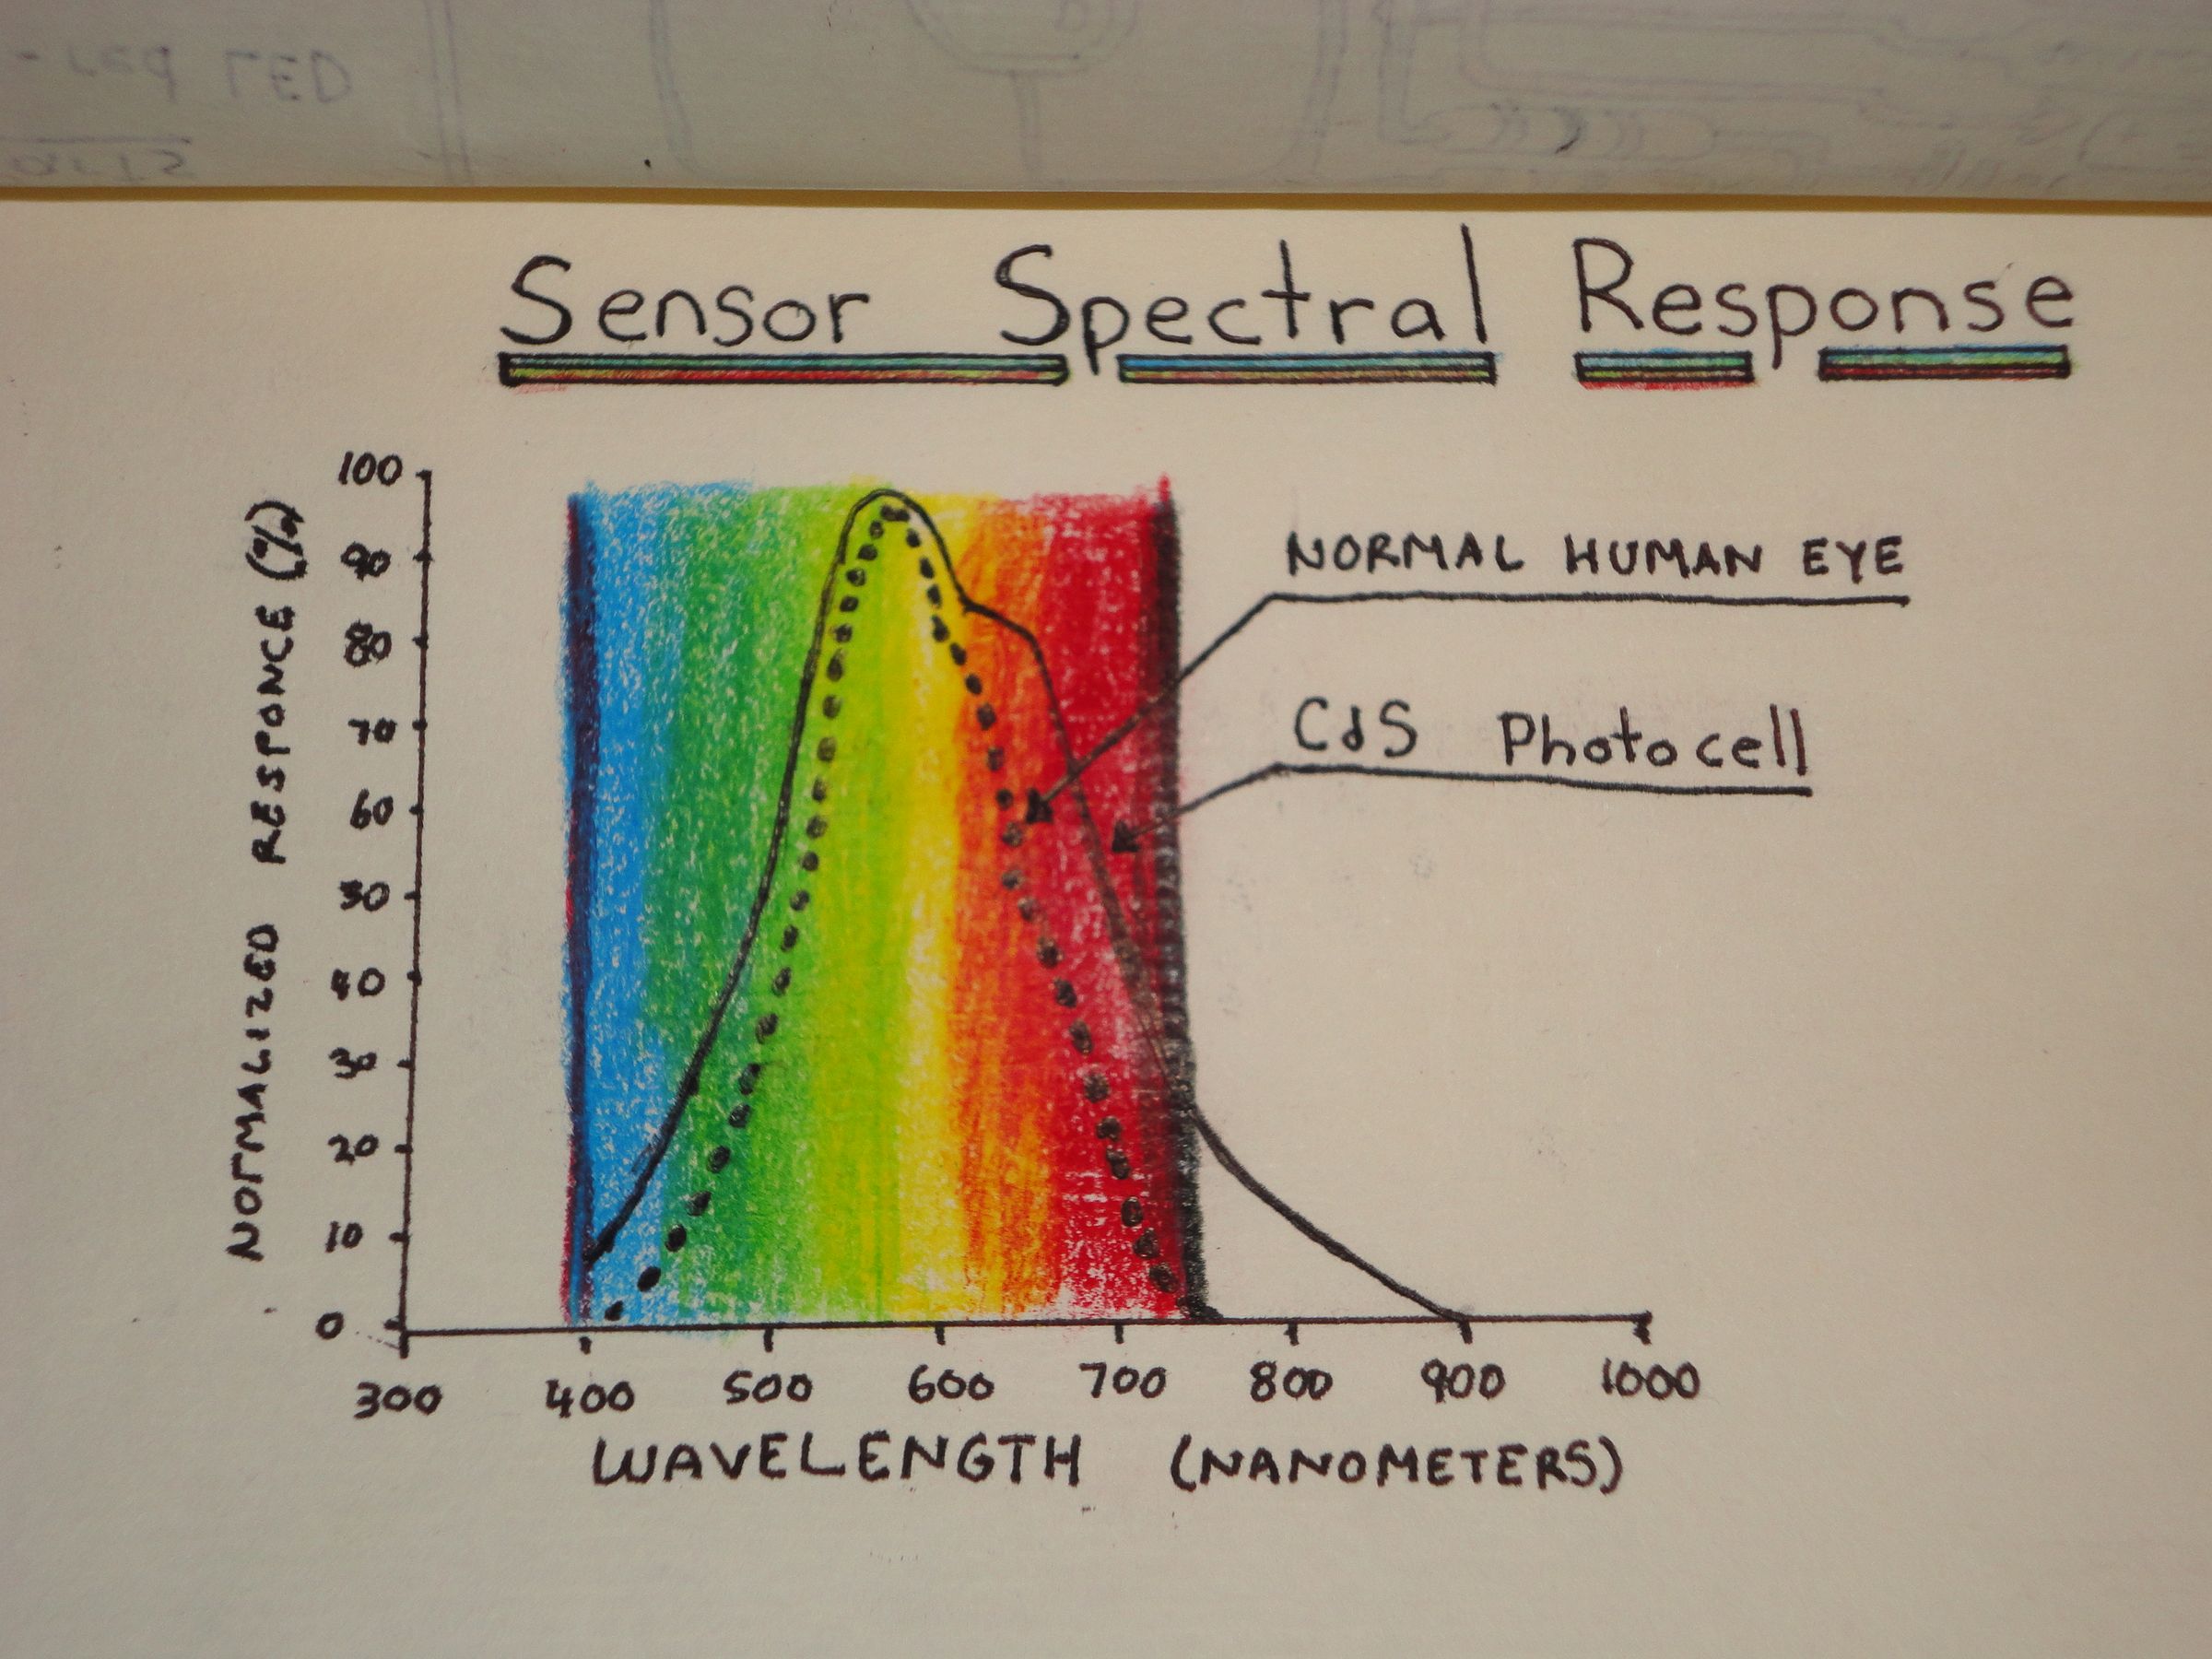 - red LED
arts
Sensor Spectral Response
NORMALIZED RESPONCE (%)
100
90
80
70
60
50
40
30
20
10
0
NORMAL HUMAN EYE
CdS Photocell
300 400 500 600 700 800 900 1000
WAVELENGTH (NANOMETERS)